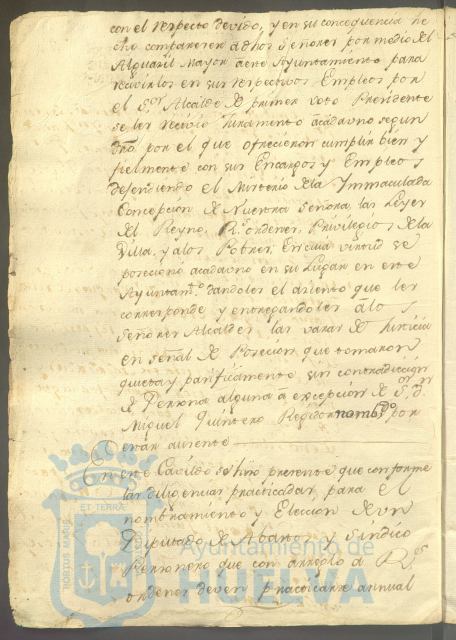 con el respecto devido, y en su concequencia he
cho comparecer adhos Señores por medio del
Alguasil mayor de este Ayuntamiento para
recivirlos en sus respectivos Empleos por
el Sor Alcalde de primer voto Presidente
se les recivió Juramento acadauno segun
dro. por el que ofrecieron cumplir bien y
fielmente con sus Encargos y Empleos
defendiendo el Misterio dela Immaculada
Concepcion de Nuestra Señora, las Leyes
del Reyno, Rs. ordenes, Privilegios dela
Villa, y alos Pobres, En cuia virtud se
posecionó acadauno en su Lugar en este
Ayuntamto. dandoles el asiento que les
corresponde y entregandoles álos
Señores Alcaldes las varas de Justicia
en señal de Posecion, que tomaron
quieta y pacificamente sin contradiccion
de Persona alguna á excepcion de Sor. Dn.
Miguel Quintero Regidor nombdo. por
estar ausente
En este Cavildo se hiso presente que conforme
las diligencias practicadas para el
nombramiento y Eleccion de un
Diputado de Abastos y Sindico
Personero que con arreglo á Rs.
ordenes deven practicarse annual
PORTUS MARIS ET TERRAE CUSTODIA
Ayuntamiento de
HUELVA